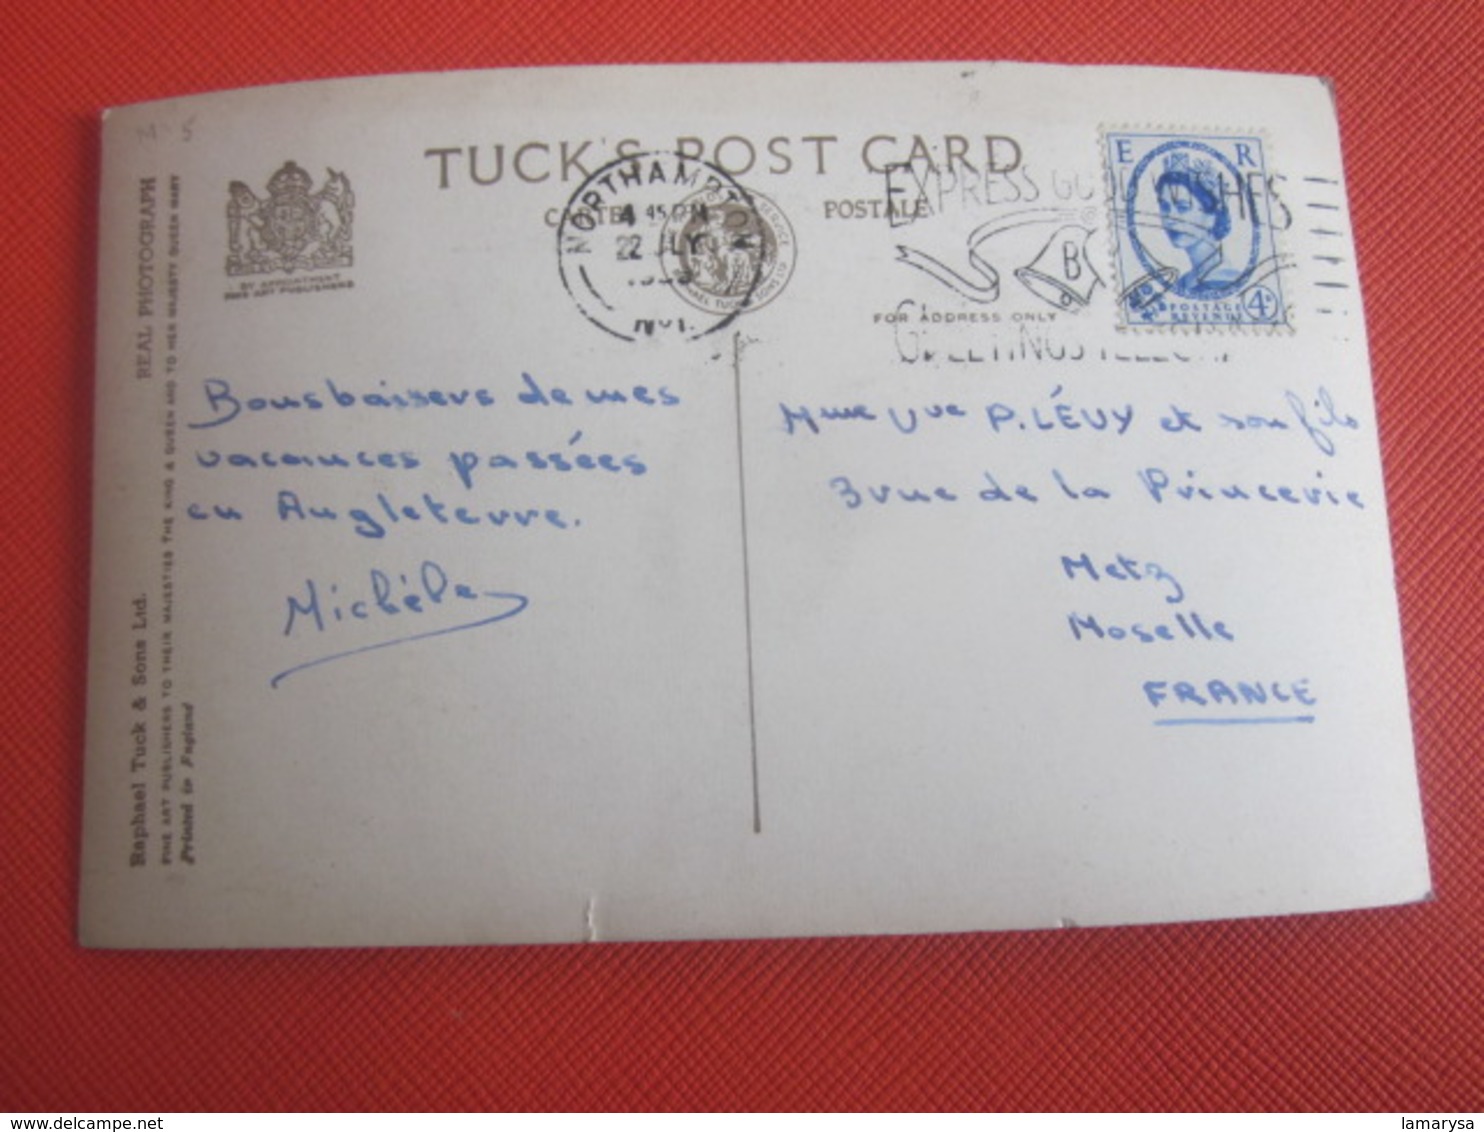 TUCK'S POST CARD
CARTE POSTALE
BY APPOINTMENT
FINE ART PUBLISHERS
NORTHAMPTON
4 45 PM
22 JLY
EXPRESS GOOD WISHES
BY
GREETINGS TELEGRAM
RAPHAEL TUCK & SONS LTD
E R
POSTAGE
REVENUE
4D
FOR ADDRESS ONLY
REAL PHOTOGRAPH
Raphael Tuck & Sons Ltd.
FINE ART PUBLISHERS TO THEIR MAJESTIES THE KING & QUEEN AND TO HER MAJESTY QUEEN MARY
Printed in England
Bons baisers de mes
vacances passées
en Angleterre.
Michèle
Mme Vve P. LÉVY et son fils
3 rue de la Princerie
Metz
Moselle
FRANCE
lamarysa